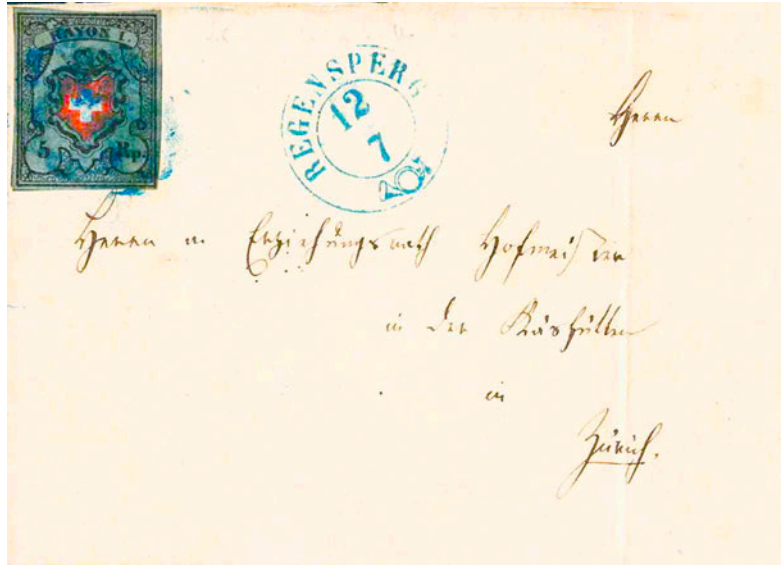 RAYON I.
5 Rp.
REGENSPERG
12
7
Herrn
Herrn Erziehungsrath Hofmeister
in der
in
Zürich.